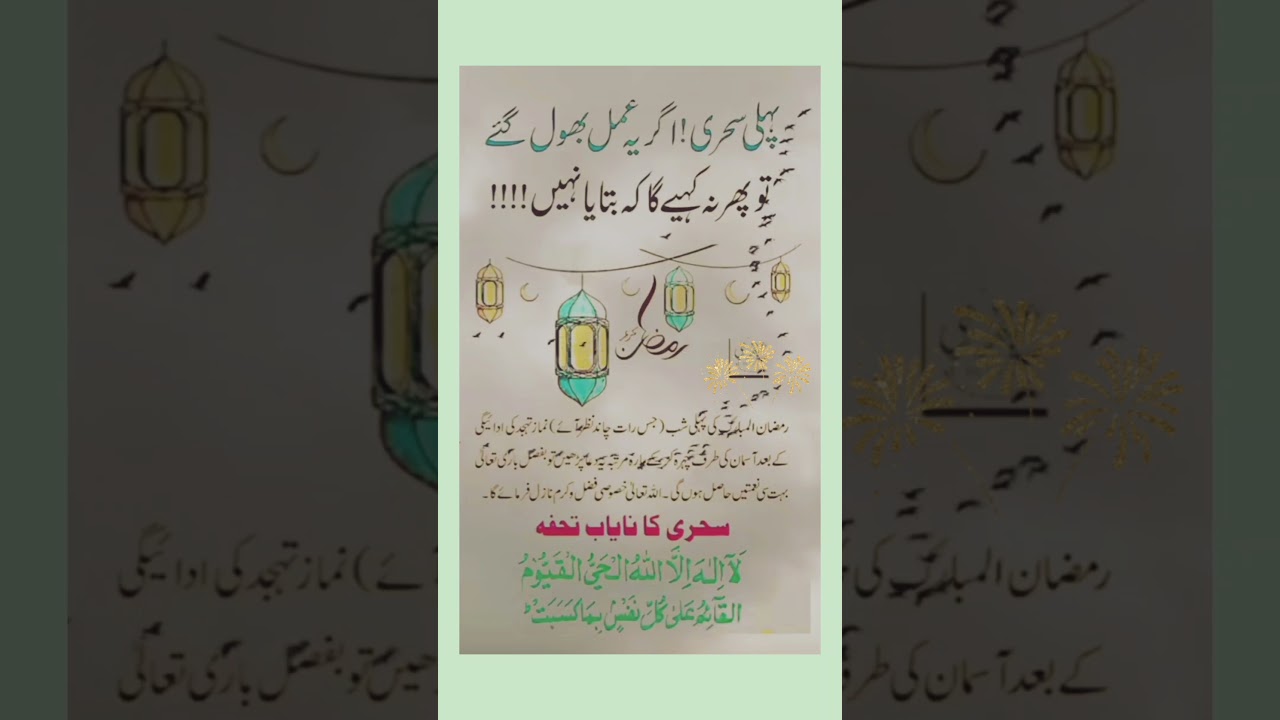 پہلی سحری! اگر یہ عمل بھول گئے
تو پھر نہ کہیے گا کہ بتایا نہیں!!!!
رمضان
رمضان المبارک کی پہلی شب (جس رات چاند نظر آئے) نماز تہجد کی ادائیگی
کے بعد آسمان کی طرف چہرہ کرکے بارہ مرتبہ یہ دعا پڑھیں تو بفضل باری تعالیٰ
بہت سی نعمتیں حاصل ہوں گی۔ اللہ تعالیٰ خصوصی فضل و کرم نازل فرمائے گا۔
سحری کا نایاب تحفہ
لَآ اِلٰهَ اِلَّا اللّٰهُ الْحَیُّ الْقَیُّوْمُ
الْقَآئِمُ عَلٰی كُلِّ نَفْسٍۭ بِمَا كَسَبَتْ ؕ